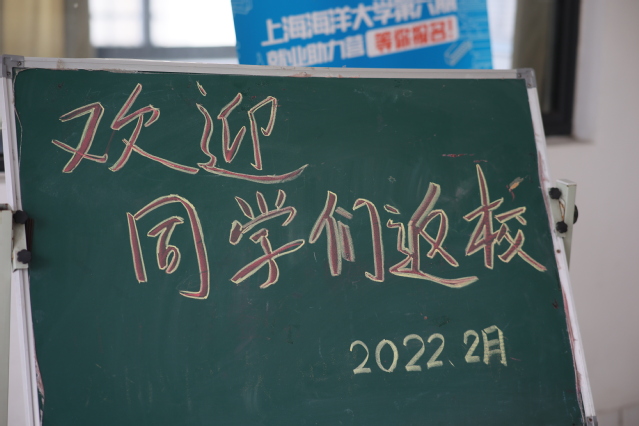 上海海洋大学第六期
就业助力营 等你报名!
欢迎
同学们返校
2022.2月